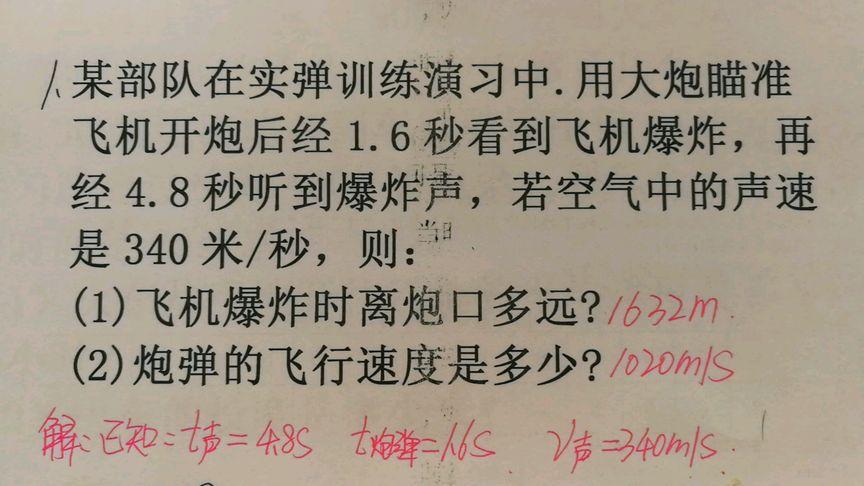 1、某部队在实弹训练演习中.用大炮瞄准
飞机开炮后经1.6秒看到飞机爆炸，再
经4.8秒听到爆炸声，若空气中的声速
是340米/秒，则：
(1)飞机爆炸时离炮口多远?1632m.
(2)炮弹的飞行速度是多少?1020m/s
解:已知:t声=4.8s t炮弹=1.6s V声=340m/s.